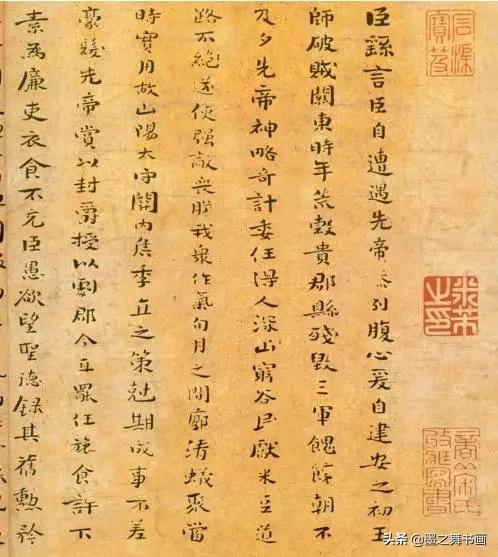 臣繇言臣自遭遇先帝忝列腹心爰自建安之初王
師破賊關東時年荒穀貴郡縣殘毀三軍餽饟朝不
及夕先帝神略奇計委任得人深山窮谷民獻米豆道
路不絕遂使强敵喪膽我衆作氣旬月之間廓清蟻聚當
時實用故山陽太守關內侯季直之策剋期成事不差
豪髮先帝賞以封爵授以劇郡今直罷任旅食許下
素爲廉吏衣食不充臣愚欲望聖德錄其舊勳矜
头条 @墨之舞书画